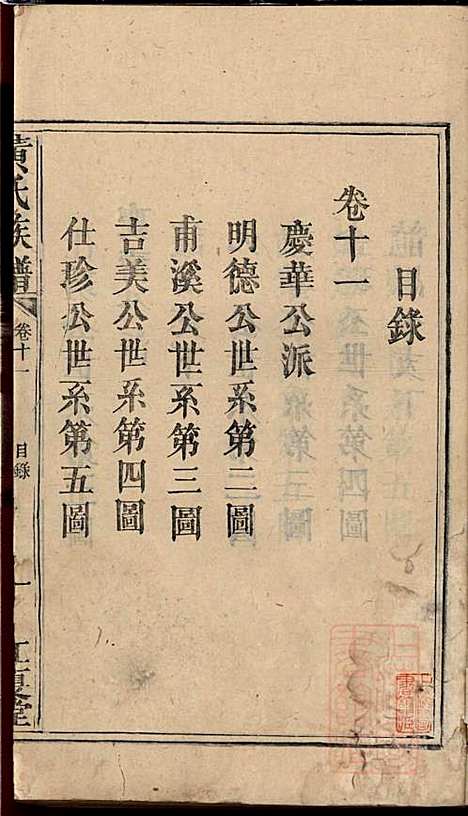 目錄
卷十一
慶華公派
明德公世系第二圖
甫溪公世系第三圖
吉美公世系第四圖
仕珍公世系第五圖
黃氏族譜
卷十一
目錄
一
江夏堂